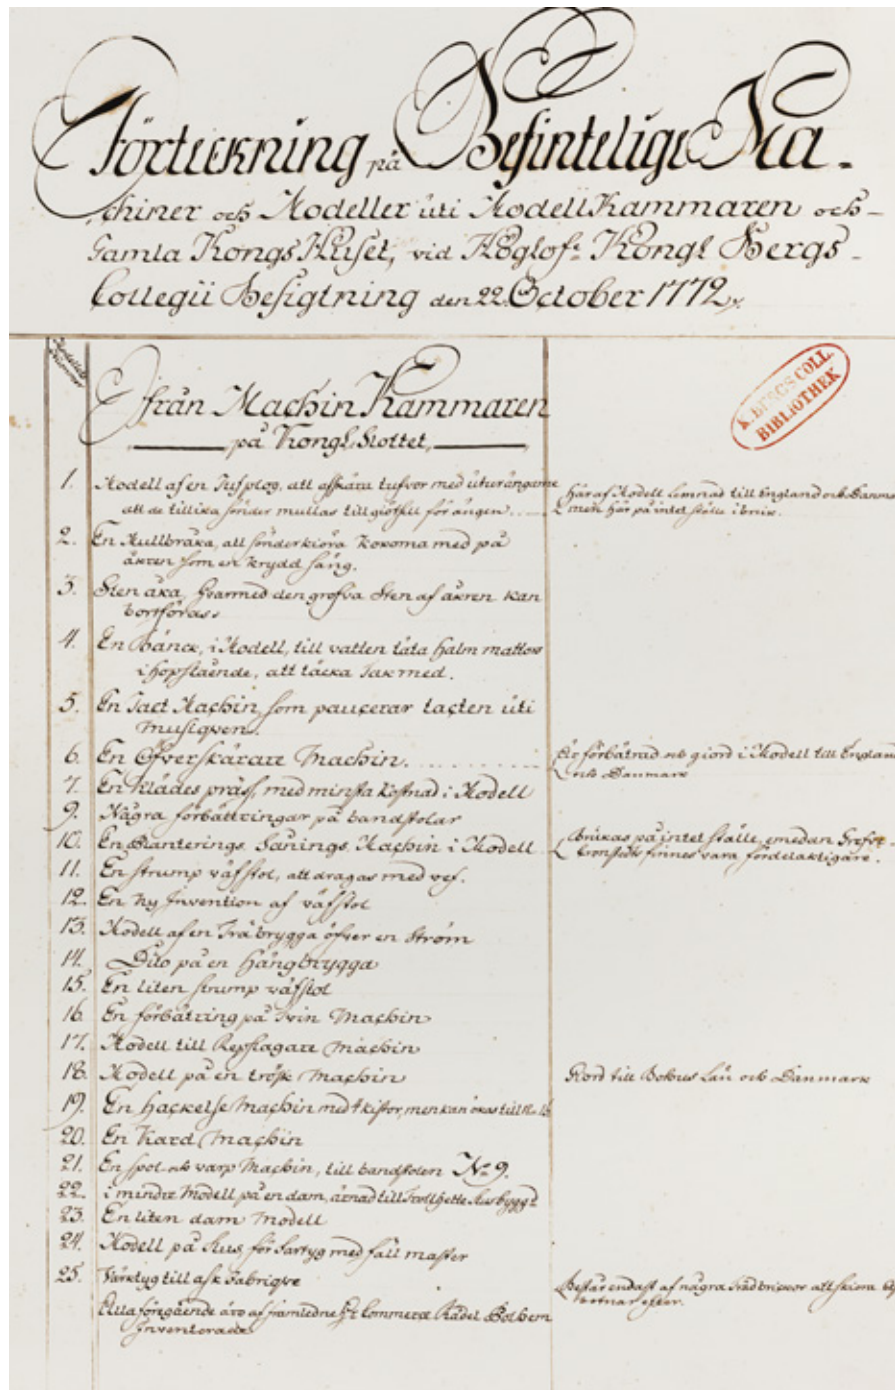 Förteckning på Befintelige Ma-
chiner och Modeller uti ModellKammaren och
Gamla KongsHuset, vid Höglofl. Kongl Bergs-
Collegii Besigtning den 22. October 1772.
Modellens Nummer
K. BERGS COLL.
BIBLIOTHEK
från Machin Kammaren
på Kongl. Slottet,
1. Modell af en Tufplog, att afskära tufvor med uturängarne
att de tillika sönder mullas till giödsel för ängen
Häraf Modell lemnad till England och Danma
men här på intet ställe i bruk.
2. En Mullbråka, att sönderkiöra Kokorna med på
åkren som en krydd säng.
3. Sten åka, hvarmed den grofva Sten af åkren kan
bortföras
4. En Bänck, i Modell, till vatten täta halm mattors
ihopslående, att täcka Tak med.
5. En Tact Machin som taçten uti
Musiqven.
6. En Öfverskärare Machin.
Är förbätrad och giord i Modell till England
och Danmark
7. En Klädes präss, med minsta kostnad i Modell
9. Några förbättringar på bandstolar
10. En Planterings Sånings Machin i Modell
Brukas på intet ställe, emedan Grefve
Cronstedts finnes vara fördelaktigare.
11. En strump väfstol, att dragas med vef.
12. En ny Invention af väfstol
13. Modell af en Träbrygga öfver en Ström
14. Dito på en hängbrygga
15. En liten strump väfstol
16. En förbätring på Tvin Machin
17. Modell till Repslagare machin
18. Modell på en trösk Machin
Giord till Bohus Län och Danmark
19. En hackelse Machin med 4 kistor, men kan ökas till
20. En Kard Machin
21. En spol och varp Machin, till bandstolen No 9.
22. i mindre Modell på en dam, ärnad till Trollhette Slusbyggd
23. En liten dam Modell
24. Modell på Slus för Fartyg med fäll master
25. Värktyg till ask Fabriqve
Består endast af några Träd att skiära
botnar efter.
Alla föregående äro af framledne Hr Commerce Rådet Polhem
Inventerade